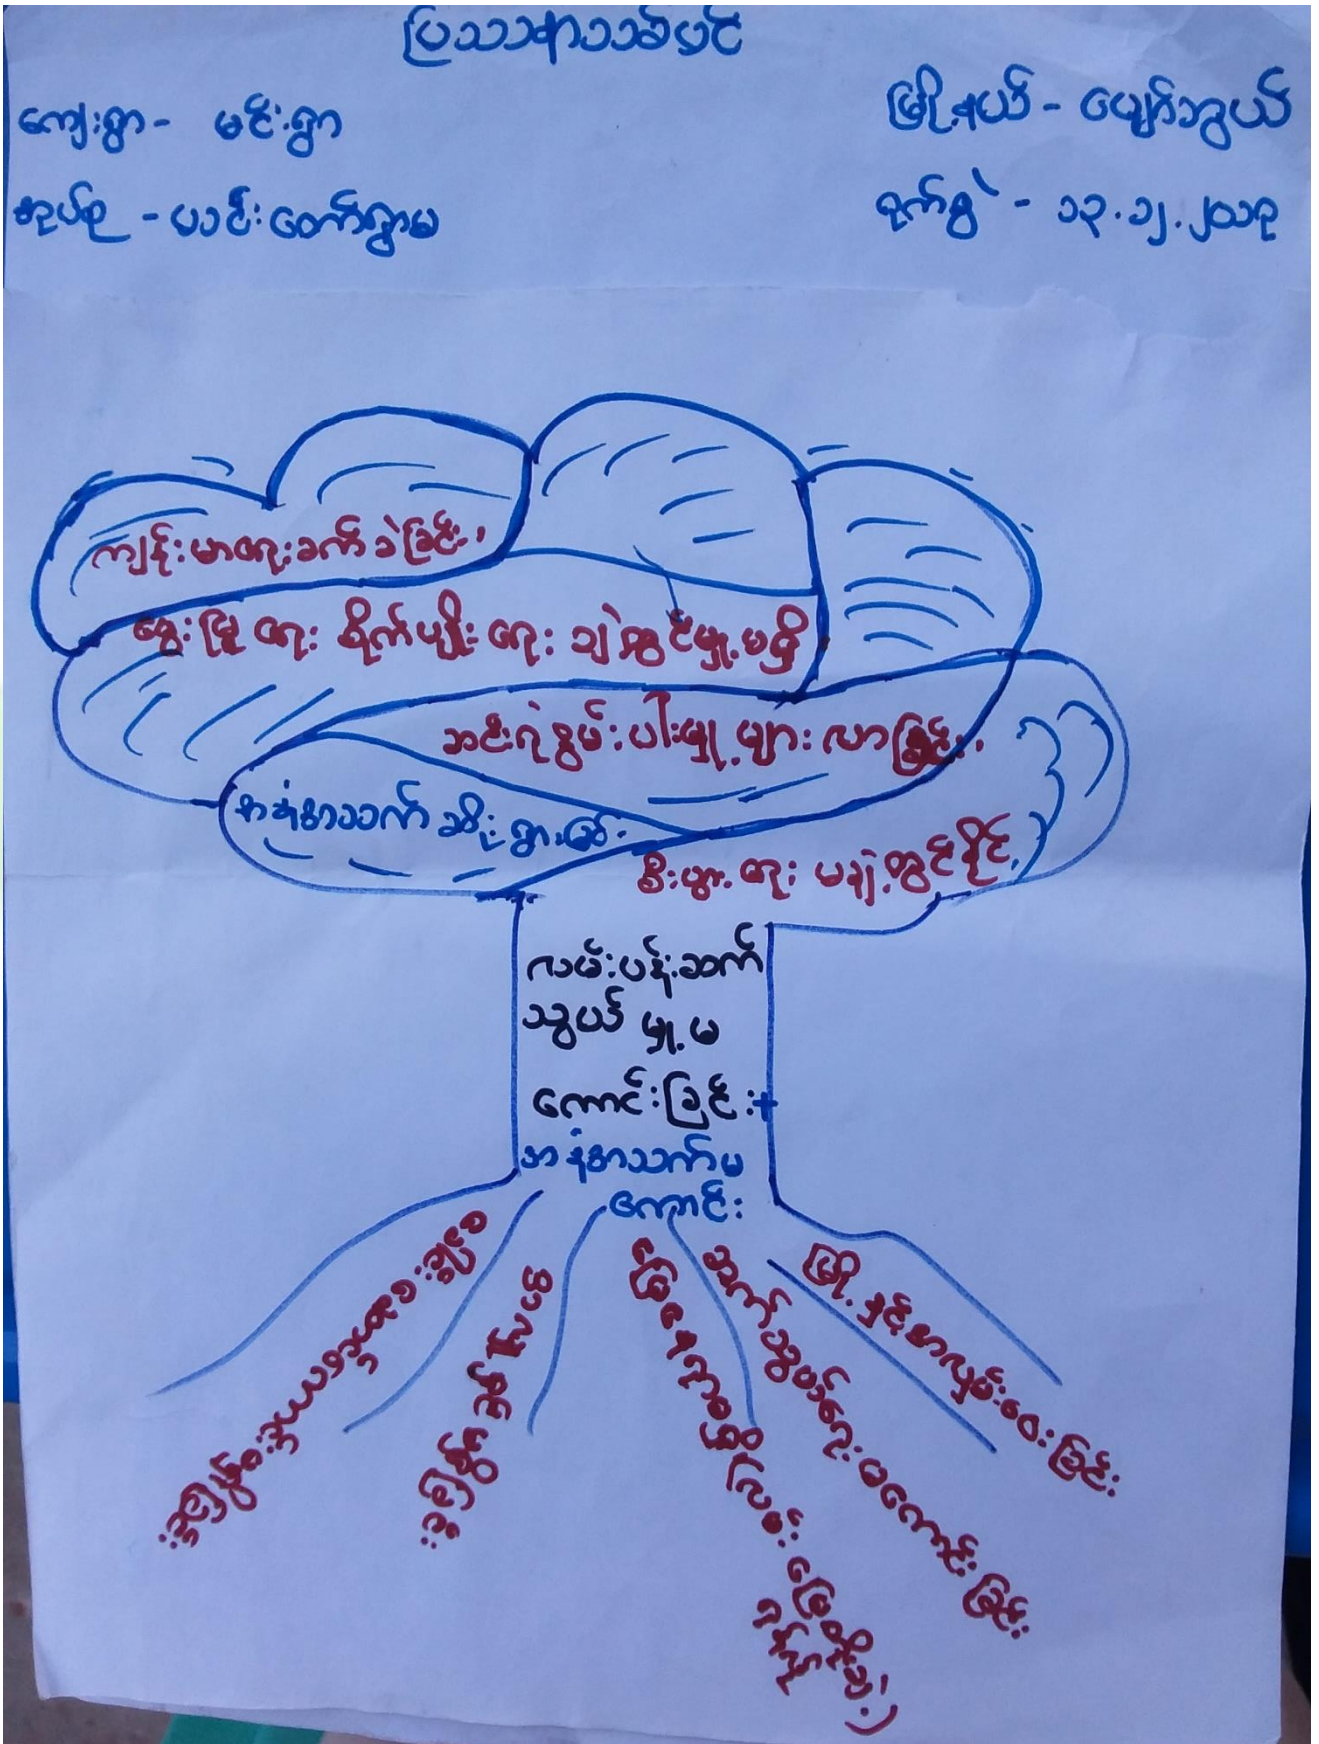 ပြဿနာသစ်ပင်
ကျေးရွာ - မင်းရွာ
မြို့နယ် - ပျော်ဘွယ်
အုပ်စု - မင်းတော်ရွာမ
ရက်စွဲ - ၁၃.၁၂.၂၀၁၃
ကျန်းမာရေးခက်ခဲခြင်း၊
မွေးမြူရေး စိုက်ပျိုးရေး ချဲ့ထွင်မှု့မရှိ
ဆင်းရဲနွမ်းပါးမှု့များလာခြင်း၊
အနံ့အသက်ဆိုးရွားခြင်း
စီးပွားရေး မချဲ့ထွင်နိုင်
လမ်းပန်းဆက်
သွယ်မှု့မ
ကောင်းခြင်း +
အနံ့အသက်မ
ကောင်း
မြေနေရာမရှိ (လမ်းမြေတိုးချဲ့
ရန်)
ဆက်သွယ်ရေးမကောင်းခြင်း
မြို့နှင့်အလှမ်းဝေးခြင်း